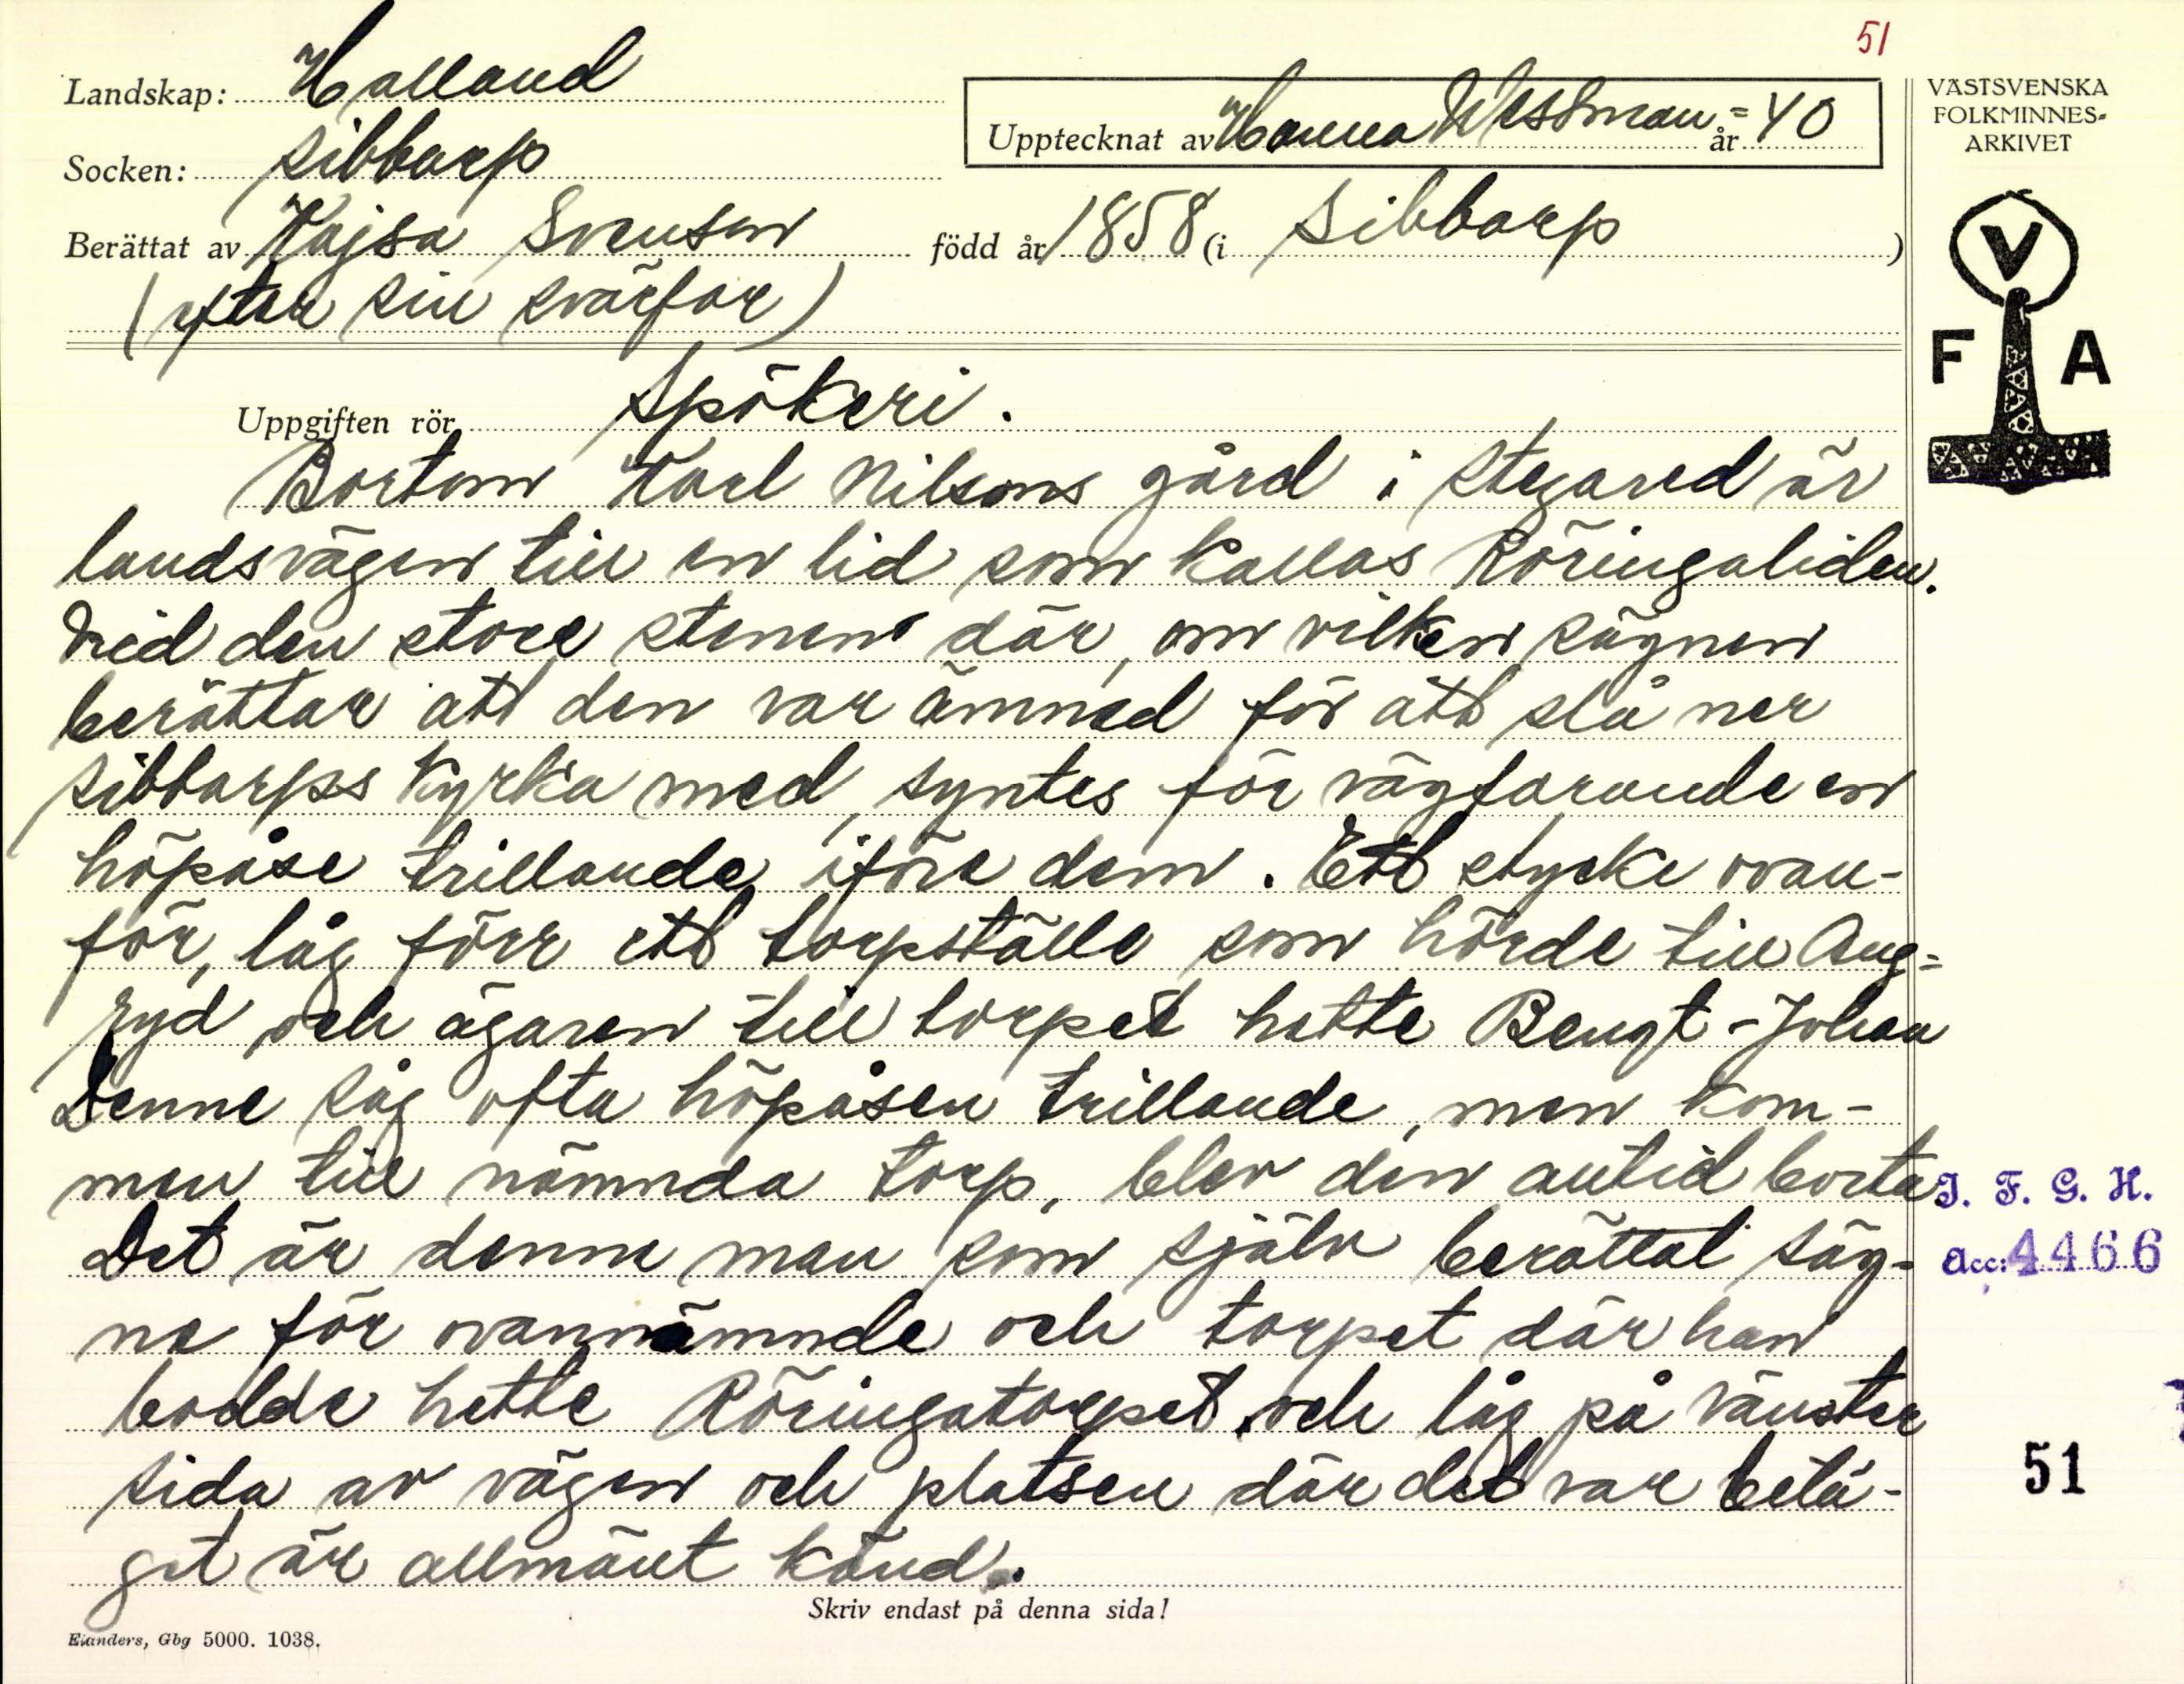 51
Landskap: Halland
Upptecknat av Hanna Wessman år = 40
VÄSTSVENSKA
FOLKMINNES-
ARKIVET
Socken: Sibbarp
Berättat av Kajsa Svensson född år 1858 (i Sibbarp)
(efter sin svärfar)
V
F A
Uppgiften rör Spökeri.
Bortom Karl Nilsons gård i Stegared är
landsvägen till en lid som kallas Röringaliden.
Vid den store stenen där, om vilken sägnen
berättar att den var ämned för att slå ner
Sibbarps kyrka med, syntes för vägfarande en
höpåse trillande iföre dem. Ett stycke ovan-
för, låg förr ett torpställe som hörde till Aug-
ryd och ägaren till torpet hette Bengt-Johan
Denne såg ofta höpåsen trillande, men kom-
men till nämnda torp, blev den antid borta.
Det är denne man som själv berättat säg-
ne för ovannämnde och torpet där han
bodde hette Röringatorpet och låg på vänster
sida av vägen och platsen där det var belä-
get är allmänt känd.
I. F. G. H.
Acc: 4466
51
Skriv endast på denna sida!
Elanders, Gbg 5000. 1038.